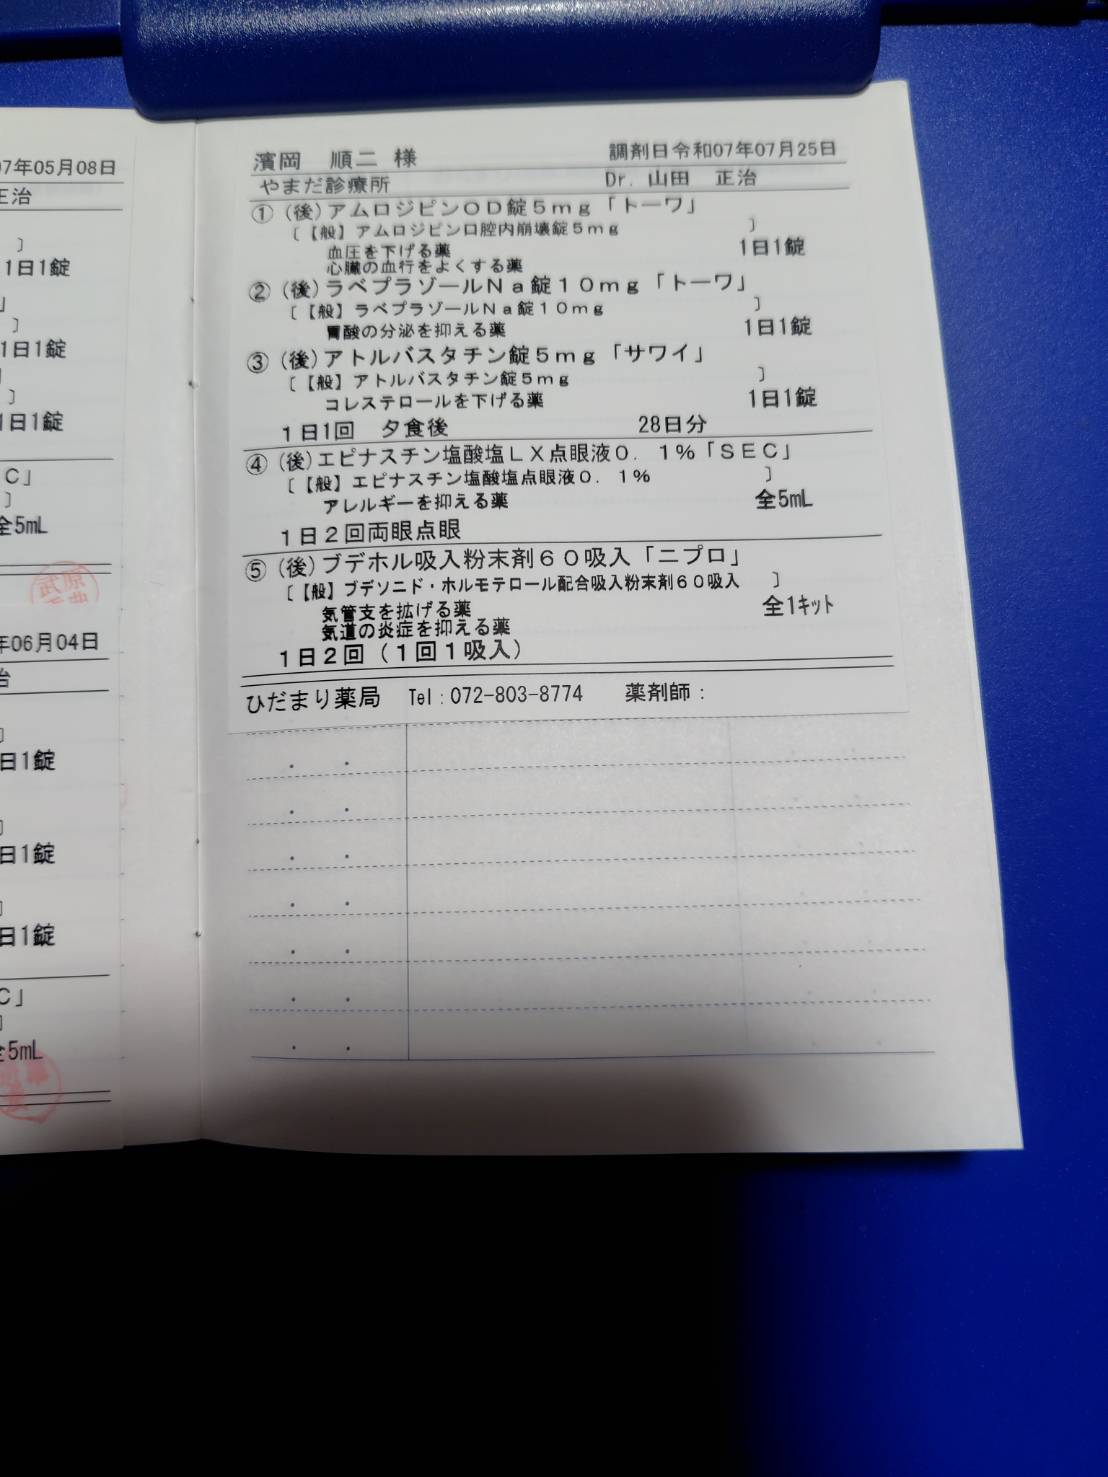 07年05月08日
正治
〕
1日1錠
」
〕
1日1錠
〕
1日1錠
C」
〕
全5mL
武原
年06月04日
治
〕
日1錠
〕
日1錠
〕
日1錠
C」
〕
全5mL
濱岡　順二 様　調剤日令和07年07月25日
やまだ診療所　Dr. 山田　正治
①(後)アムロジピンOD錠5mg「トーワ」
〔【般】アムロジピン口腔内崩壊錠5mg　〕
血圧を下げる薬　1日1錠
心臓の血行をよくする薬
②(後)ラベプラゾールNa錠10mg「トーワ」
〔【般】ラベプラゾールNa錠10mg　〕
胃酸の分泌を抑える薬　1日1錠
③(後)アトルバスタチン錠5mg「サワイ」
〔【般】アトルバスタチン錠5mg　〕
コレステロールを下げる薬　1日1錠
1日1回　夕食後　28日分
④(後)エピナスチン塩酸塩LX点眼液0.1%「SEC」
〔【般】エピナスチン塩酸塩点眼液0.1%　〕
アレルギーを抑える薬　全5mL
1日2回両眼点眼
⑤(後)ブデホル吸入粉末剤60吸入「ニプロ」
〔【般】ブデソニド・ホルモテロール配合吸入粉末剤60吸入　〕
気管支を拡げる薬　全1キット
気道の炎症を抑える薬
1日2回(1回1吸入)
ひだまり薬局　Tel:072-803-8774　薬剤師: